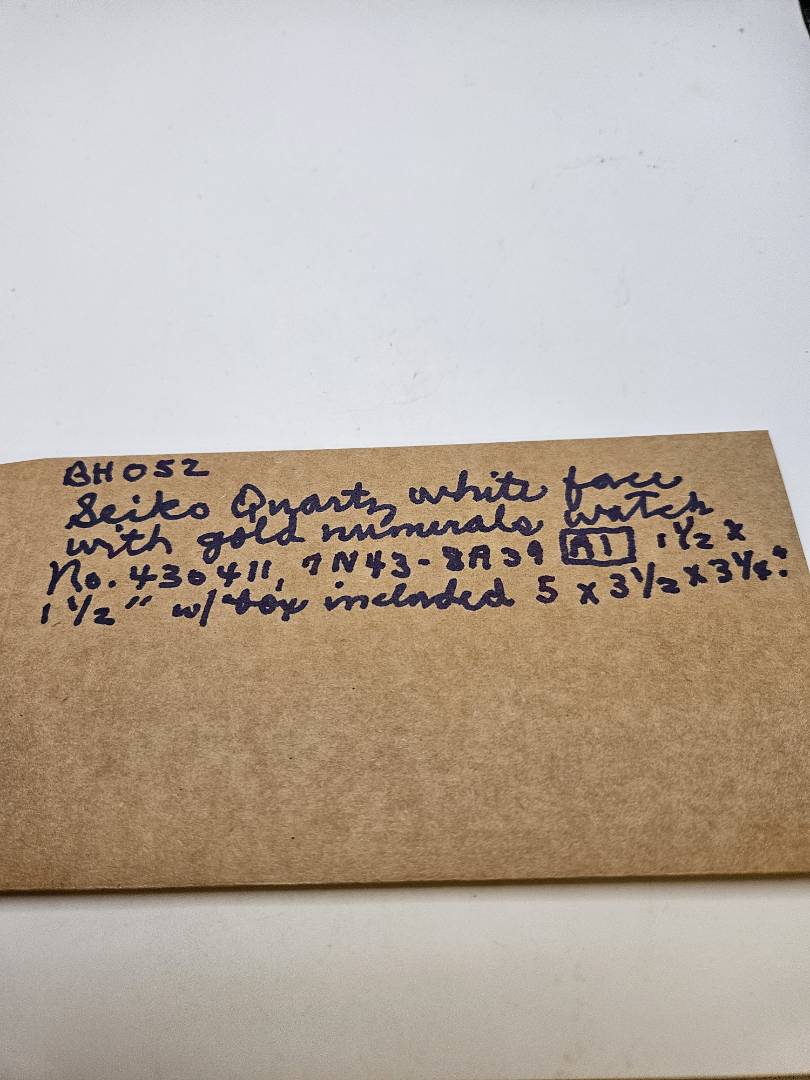 BH052
Seiko Quartz white face
with gold numerals watch
No. 430411, 7N43-8A39 A1 1 1/2 x
1 1/2" w/ box included 5 x 3 1/2 x 3 1/4"